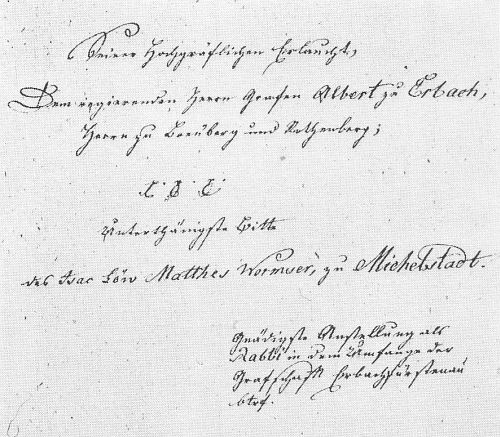 Seiner Hochgräflichen Erlaucht,
Dem regierenden Herrn Grafen Albert zu Erbach,
Herrn zu Breuberg und Rothenberg;
Unterthänigste Bitte
des Isac Löw Matthes Wormser, zu Michelstadt.
Gnädigste Anstellung als
Rabbi in dem Umfange der
Grafschaft Erbachfürstenau
btrf.